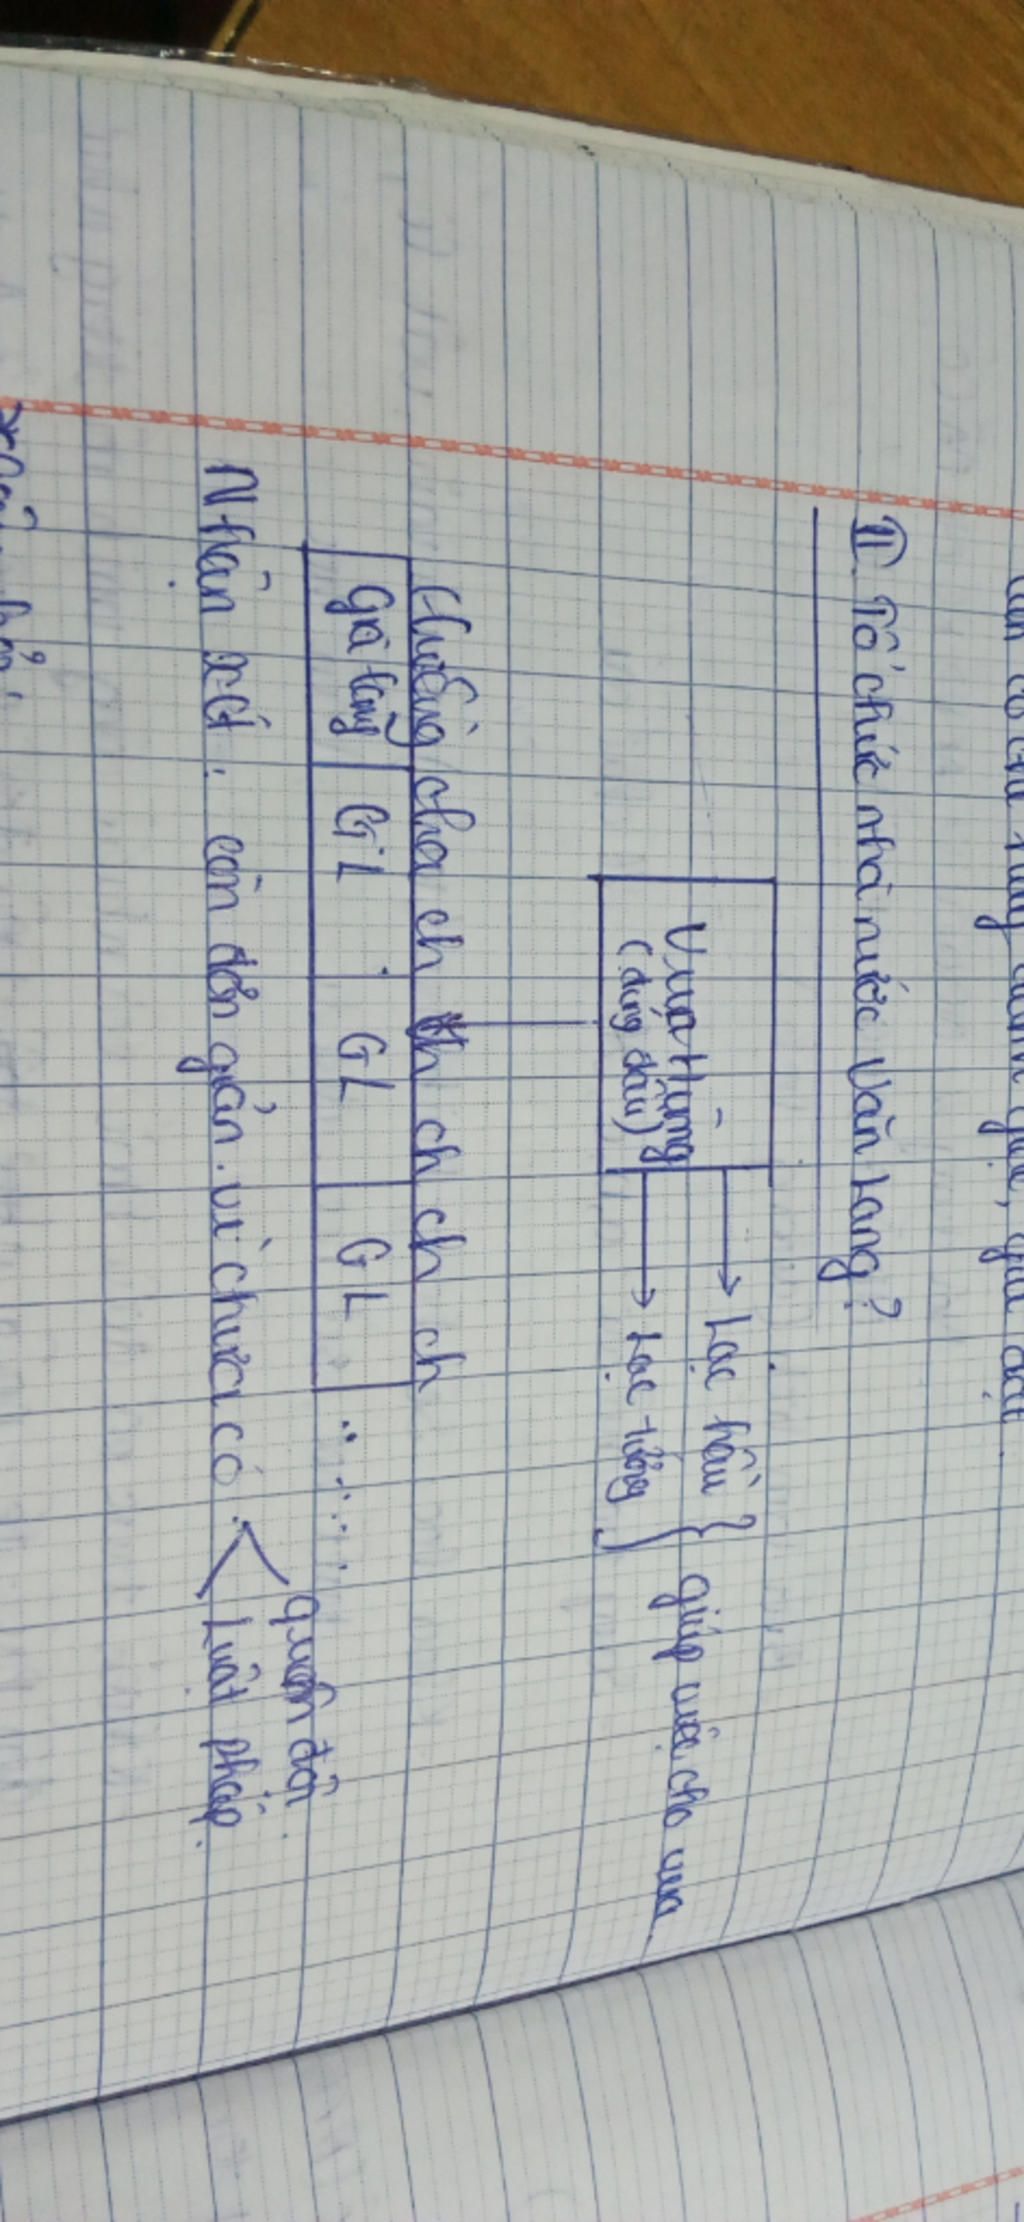 II. Tổ chức nhà nước Văn Lang?
Vua Hùng
(đứng đầu)
Lạc hầu
Lạc tướng
giúp việc cho vua
ch ch ch ch ch
Già làng GL GL GL .....
Nhận xét: còn đơn giản vì chưa có
quân đội.
Luật pháp.